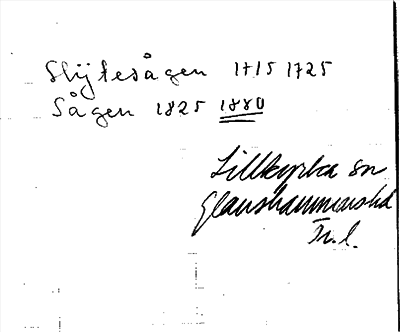 Slytesågen 1715 1725
Sågen 1825 1880
Lillkyrka sn
Glanshammars hd
Tr. l.